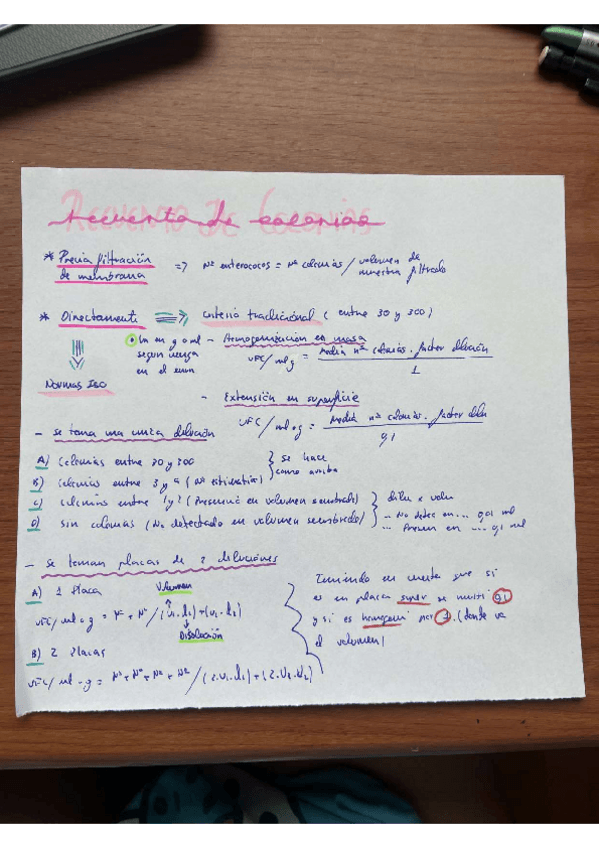 Recuento De Colonias
* Previa filtración de membrana => Nº enterococos = Nº colonias / volumen de muestra filtrado
* Directamente => Criterio tradicional (entre 30 y 300)
Un en g o ml según venga en el enun
- Homogenización en masa
UFC/ml g = Media nº colonias . factor dilución / 1
Normas ISO
- Extensión en superficie
UFC/ml o g = Media nº colonias . factor dilu / 0,1
- Se toma una única dilución
A) Colonias entre 30 y 300 } se hace como arriba
B) Colonias entre 3 y 9 (Nº estimativo)
C) Colonias entre 1 y 2 (Presencia en volumen sembrado) } dilu x volu
D) Sin colonias (No detectado en volumen sembrado)
- No detec en ... 0,01 ml
- Presen en ... 0,1 ml
- Se toman placas de 2 diluciones
A) 1 Placa
Volumen
UFC/ml o g = Nº + Nº / (V1.d1)+(V2.d2)
Disolución
B) 2 Placas
UFC/ml - g = Nº + Nº + Nº + Nº / (2.V1.d1)+(2.V2.d2)
Teniendo en cuenta que si
es en placa super se multi 0,1
y si es homogeni por 1. (donde va
el volumen)